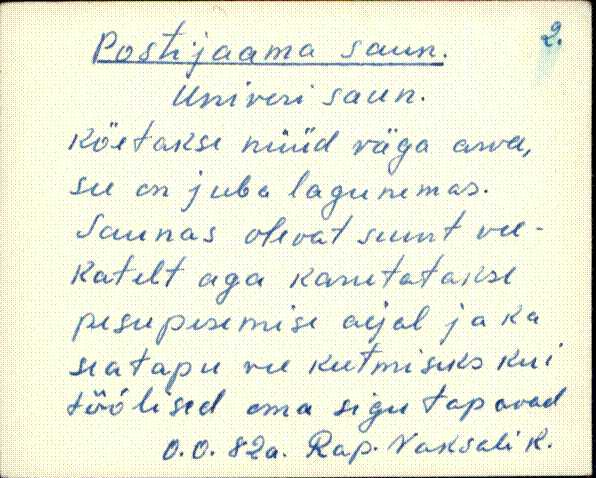 2.
Postijaama saun.
Univeri saun.
Köetakse nüüd väga arva,
see on juba lagunemas.
Saunas olevat suurt vee-
katelt aga kasutatakse
pesupesemise aijal ja ka
seatapu vee keetmiseks kui
töölised oma sigu tapavad
O.O. 82a. Rap. Vaksali K.